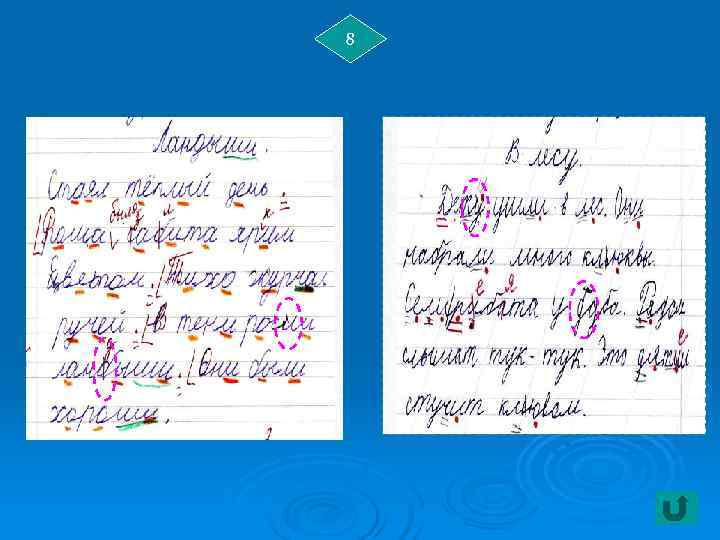 8
Ландыши.
Стоял тёплый день.
была л х
Роша забита ярим
цветом. Тихо журчал
ручей. В тени рощи
ландыши. Они были
хороши.
В лесу.
ушли в лес. Они
набрали много клюквы.
е я
у дуба.
слышат тук-тук. Это
е
стучит клювом.